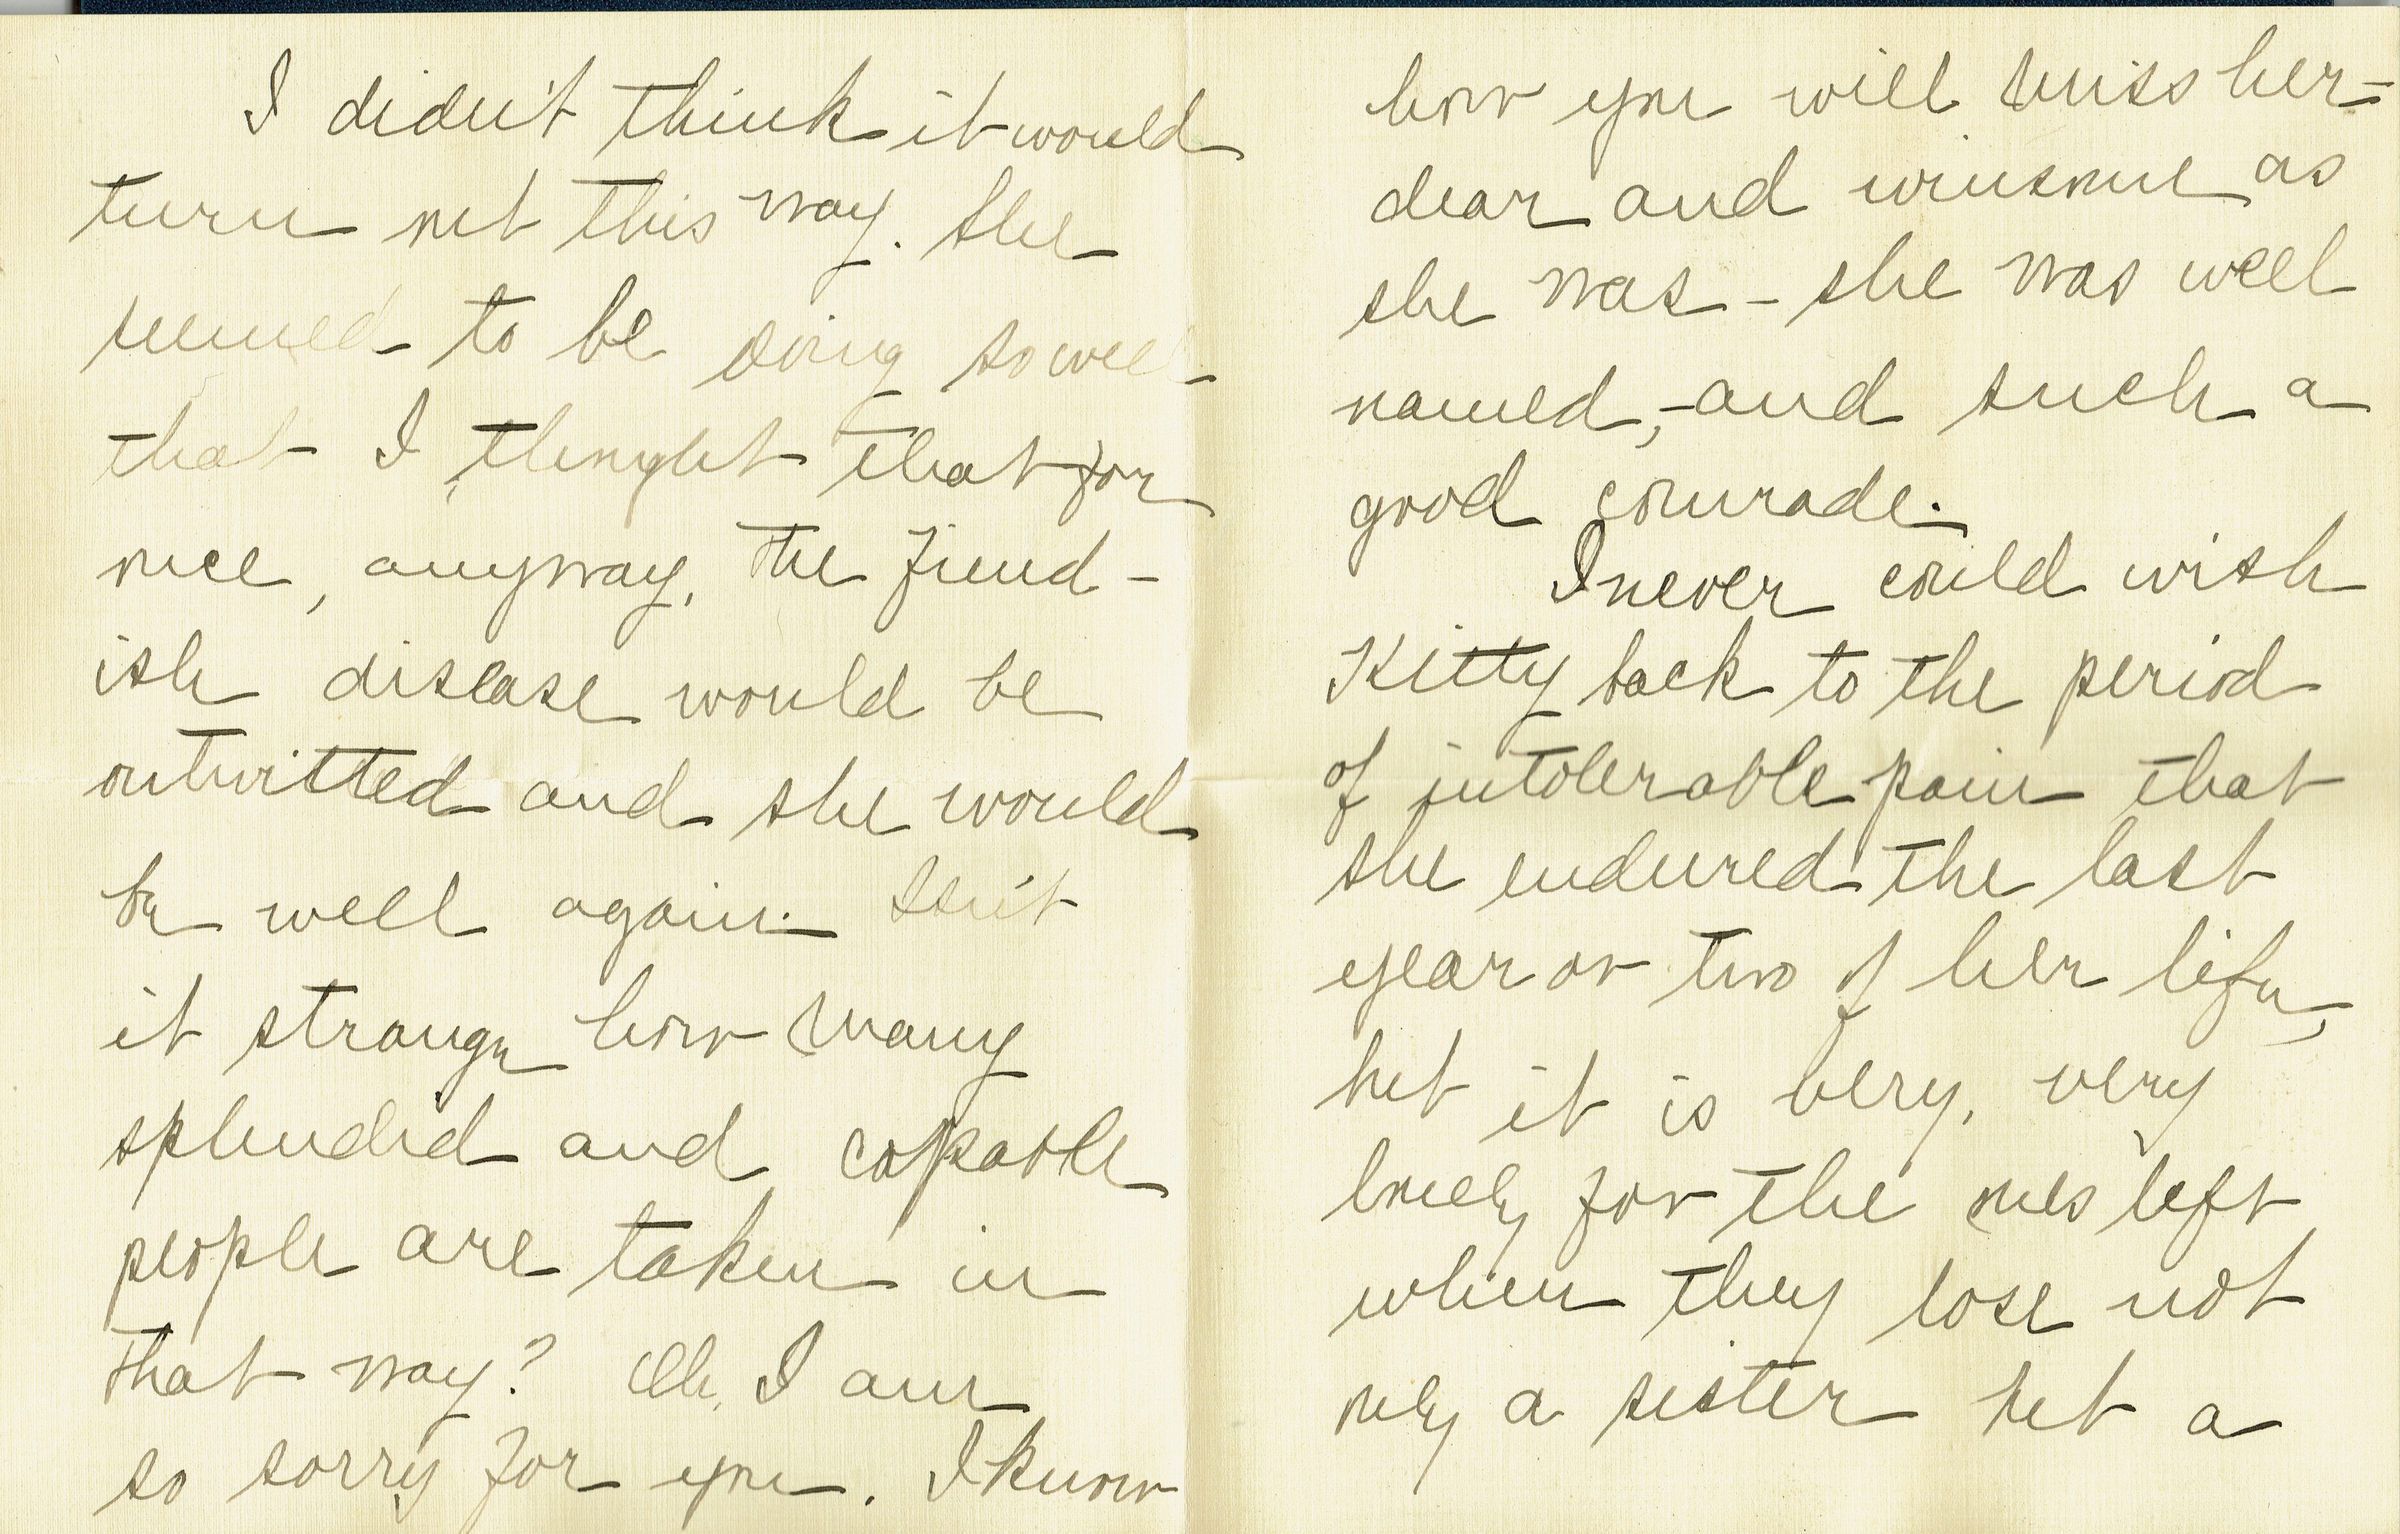 I didn't think it would
turn out this way. She
seemed to be doing so well
that I thought that for
once, anyway, the fiend-
ish disease would be
outwitted and she would
be well again. Isn't
it strange how many
splendid and capable
people are taken in
that way? Oh, I am
so sorry for you. I know
how you will miss her-
dear and winsome as
she was - she was well
named, - and such a
good comrade.
I never could wish
Kitty back to the period
of intolerable pain that
she endured the last
year or two of her life,
but it is very, very
lonely for the ones left
when they lose not
only a sister but a